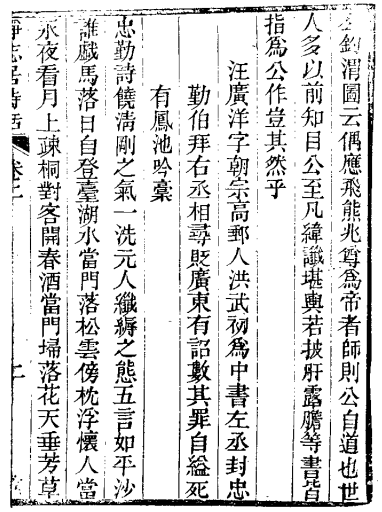 釣渭圖云偶應飛熊兆尊爲帝者師則公自道也世
人多以前知目公至凡緯讖堪輿若披肝露膽等書皆
指爲公作豈其然乎
汪廣洋字朝宗高郵人洪武初爲中書左丞封忠
勤伯拜右丞相尋貶廣東有詔數其罪自縊死
有鳳池吟稾
忠勤詩饒清剛之氣一洗元人纖縟之態五言如平沙
誰戯馬落日自登臺湖水當門落松雲傍枕浮懷人當
永夜看月上疎桐對客開春酒當門埽落花天垂芳草
靜志居詩話 卷二